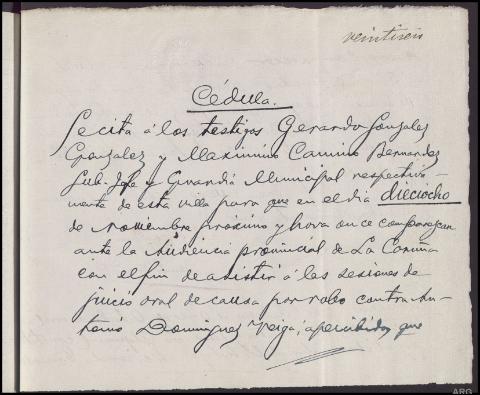 veintiseis
Cédula.
Se cita á los testigos Gerardo Gonzalez
Gonzalez y Maximino Camino Bernardez
Sub-Jefe y Guardia Municipal respectiva-
mente de esta villa para que en el dia dieciocho
de noviembre próximo y hora once comparezcan
ante la Audiencia provincial de La Coruña
con el fin de asistir á las sesiones de
juicio oral de causa por robo contra An-
tonio Dominguez Veiga; apercibidos que
ARG